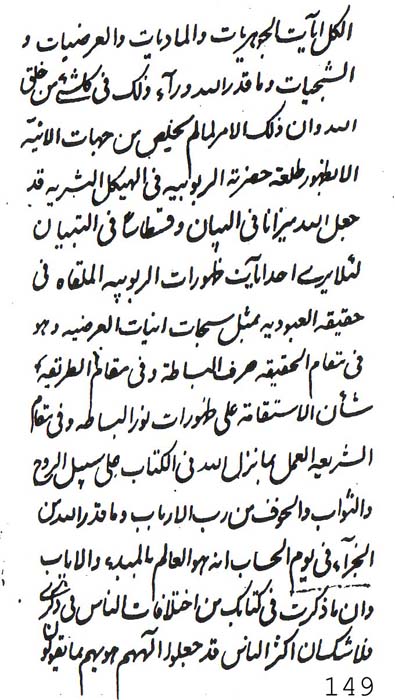 الكل ايآيت الجوهريات والماديات والعرضيات و
الشبحيات وما قدر الله ورآء ذلك فى كلشئ من خلق
الله وان ذلك الامر لما لم يخلص من جهات الانيّة
الا بظهور طلعة حضرته الربوبيه فى الهيكل البشريه قد
جعل الله ميزانا فى البيان وقسطاسا فى التبيان
لئلا يرى احد ايآيت ظهورات الربوبيه الملقاه فى
حقيقه العبوديه بمثل سبحات انيات العرضيه وهو
فى مقام الحقيقه صرف البساطة وفى مقام الطريقه
شأن الاستقامة على ظهورات نور البساطه وفى مقام
الشريعه العمل بما نزل الله فى الكتاب على سبيل الروح
والثواب والخوف من رب الارباب وما قدر الله من
الجزآء فى يوم الحساب انه هو العالم بالمبدء والاياب
وان ما ذكرت فى كتابك من اختلافات الناس فى ذكرى
فلا شك ان اكثر الناس قد جعلوا الههم هويهم بما يقولون
149